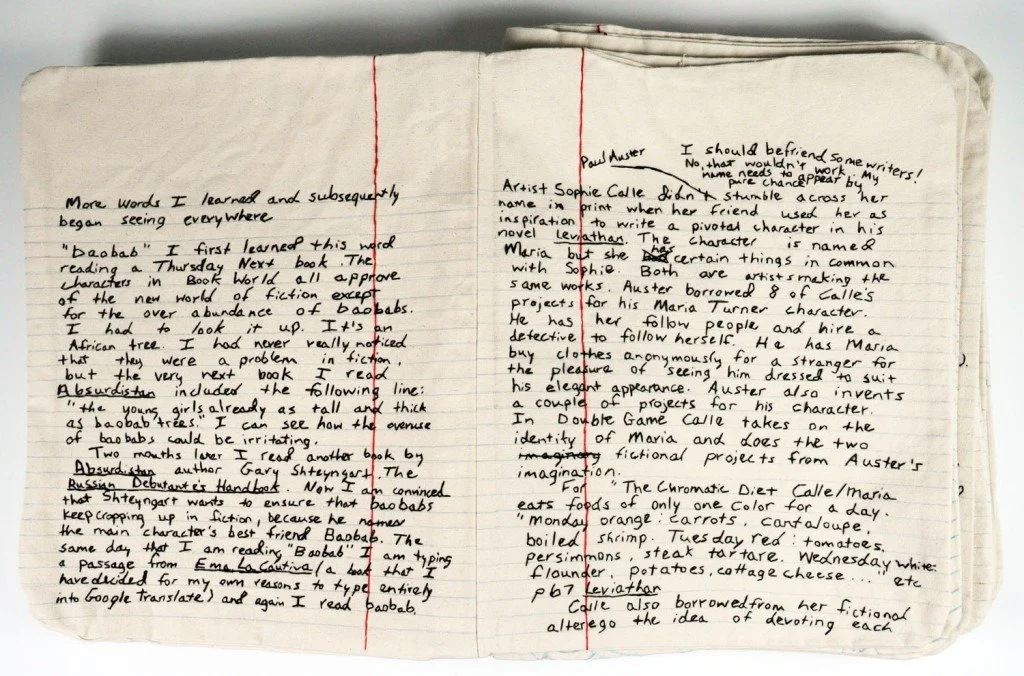 More words I learned and subsequently
began seeing everywhere
"Baobab" I first learned this word
reading a Thursday Next book. The
characters in Book World all approve
of the new world of fiction except
for the over abundance of baobabs.
I had to look it up. It's an
African tree. I had never really noticed
that they were a problem in fiction,
but the very next book I read
Absurdistan included the following line:
"the young girls already as tall and thick
as baobab trees." I can see how the overuse
of baobabs could be irritating.
Two months later I read another book by
Absurdistan author Gary Shteyngart. The
Russian Debutante's Handbook. Now I am convinced
that Shteyngart wants to ensure that baobabs
keep cropping up in fiction, because he names
the main character's best friend Baobab. The
same day that I am reading "Baobab" I am typing
a passage from Ema La Cautiva (a book that I
have decided for my own reasons to type entirely
into Google Translate) and again I read baobab.
I should befriend some writers!
No, that wouldn't work. My
name needs to appear by
pure chance
Paul Auster
Artist Sophie Calle didn't stumble across her
name in print when her friend used her as
inspiration to write a pivotal character in his
novel Leviathan. The character is named
Maria but she has certain things in common
with Sophie. Both are artists making the
same works. Auster borrowed 8 of Calle's
projects for his Maria Turner character.
He has her follow people and hire a
detective to follow herself. He has Maria
buy clothes anonymously for a stranger for
the pleasure of seeing him dressed to suit
his elegant appearance. Auster also invents
a couple of projects for his character.
In Double Game Calle takes on the
identity of Maria and does the two
imaginary fictional projects from Auster's
imagination.
For "The Chromatic Diet Calle/Maria
eats foods of only one color for a day.
"Monday orange: carrots, cantaloupe,
boiled shrimp. Tuesday red: tomatoes,
persimmons, steak tartare. Wednesday white:
flounder, potatoes, cottage cheese..." etc
p 67 Leviathan
Calle also borrowed from her fictional
alterego the idea of devoting each